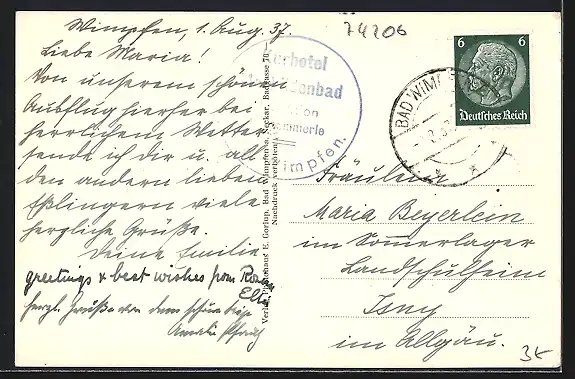 Wimpfen, 1. Aug. 37.
74206
Liebe Maria!
Von unserem schönen
Ausflug hierher bei
herrlichem Wetter
sende ich dir u. all
den andern lieben
Eßlingern viele
herzliche Grüße.
Deine Emilie
greetings & best wishes from
Elli
herzl. Grüße von dem schönen
Amalie
Kurhotel
Wimpfen.
Verlag: E. Gorjup, Bad Wimpfen a. Neckar, Badgasse 70.
Nachdruck verboten!
6 6
Deutsches Reich
BAD WIMPFEN
Fräulein
Maria Beyerlein
im Sommerlager
Landschulheim
Isny
im Allgäu.